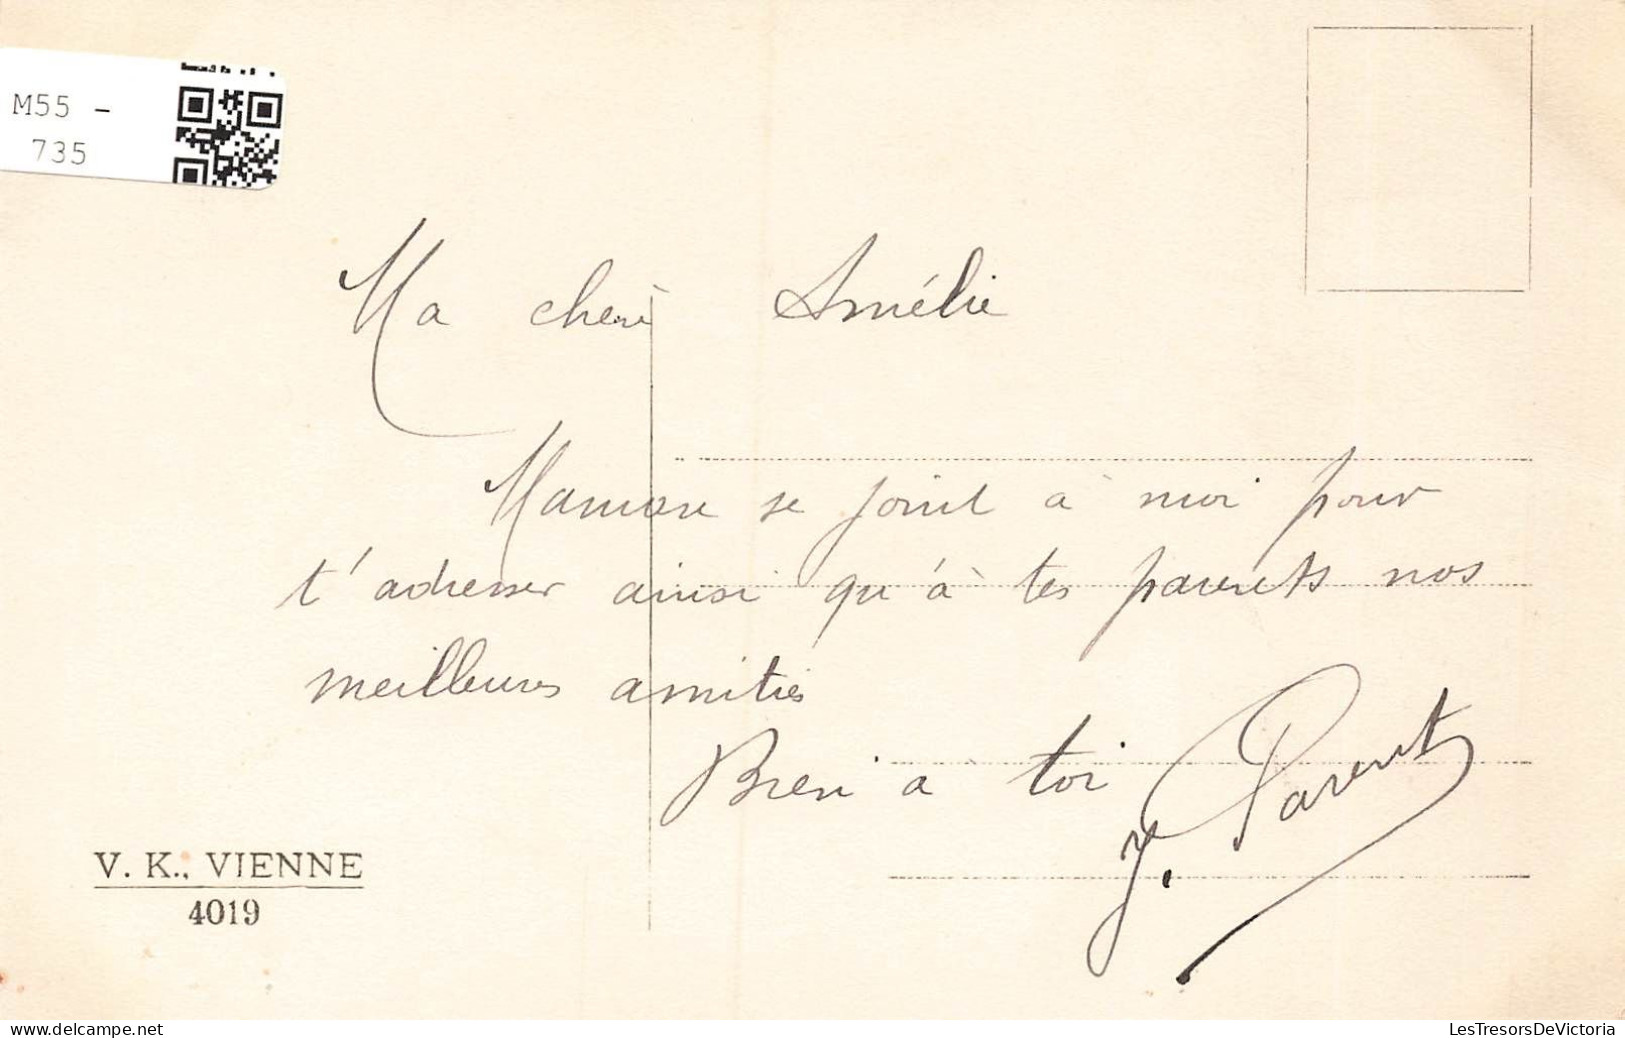 M55 -
735
Ma chère Amélie
Maman se joint à moi pour
t'adresser ainsi qu'à tes parents nos
meilleures amitiés
Bien à toi
J. Parent
V. K., VIENNE
4019
delcampe.net
LesTresorsDeVictoria